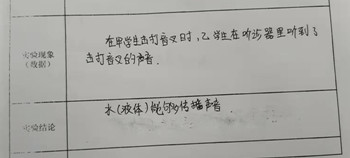 实验现象
(数据)
在甲学生击打音叉时,乙学生在听诊器里听到了
击打音叉的声音.
水(液体)能够传播声音.
实验结论